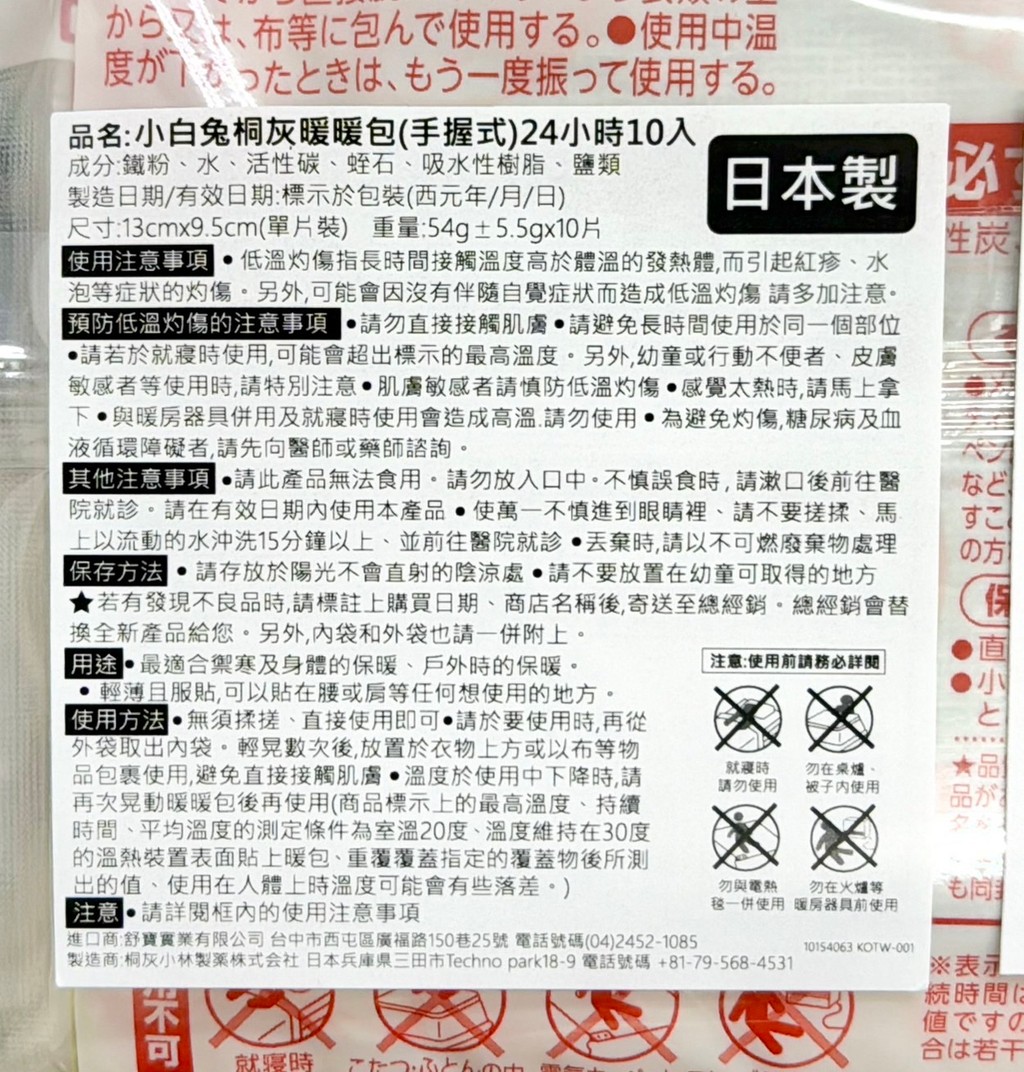 から又は、布等に包んで使用する。●使用中温
度が下がったときは、もう一度振って使用する。
品名:小白兔桐灰暖暖包(手握式)24小時10入
成分:鐵粉、水、活性碳、蛭石、吸水性樹脂、鹽類
製造日期/有效日期:標示於包裝(西元年/月/日)
尺寸:13cmx9.5cm(單片裝) 重量:54g±5.5gx10片
日本製
使用注意事項 •低溫灼傷指長時間接觸溫度高於體溫的發熱體,而引起紅疹、水
泡等症狀的灼傷。另外,可能會因沒有伴隨自覺症狀而造成低溫灼傷 請多加注意。
預防低溫灼傷的注意事項 •請勿直接接觸肌膚•請避免長時間使用於同一個部位
•請若於就寢時使用,可能會超出標示的最高溫度。另外,幼童或行動不便者、皮膚
敏感者等使用時,請特別注意•肌膚敏感者請慎防低溫灼傷•感覺太熱時,請馬上拿
下•與暖房器具併用及就寢時使用會造成高溫.請勿使用•為避免灼傷,糖尿病及血
液循環障礙者,請先向醫師或藥師諮詢。
其他注意事項 •請此產品無法食用。請勿放入口中。不慎誤食時,請漱口後前往醫
院就診。請在有效日期內使用本產品•使萬一不慎進到眼睛裡、請不要搓揉、馬
上以流動的水沖洗15分鐘以上、並前往醫院就診•丟棄時,請以不可燃廢棄物處理
保存方法 •請存放於陽光不會直射的陰涼處•請不要放置在幼童可取得的地方
★若有發現不良品時,請標註上購買日期、商店名稱後,寄送至總經銷。總經銷會替
換全新產品給您。另外,內袋和外袋也請一併附上。
用途 •最適合禦寒及身體的保暖、戶外時的保暖。
•輕薄且服貼,可以貼在腰或肩等任何想使用的地方。
使用方法 •無須揉搓、直接使用即可•請於要使用時,再從
外袋取出內袋。輕晃數次後,放置於衣物上方或以布等物
品包裹使用,避免直接接觸肌膚•溫度於使用中下降時,請
再次晃動暖暖包後再使用(商品標示上的最高溫度、持續
時間、平均溫度的測定條件為室溫20度、溫度維持在30度
的溫熱裝置表面貼上暖包、重覆覆蓋指定的覆蓋物後所測
出的值、使用在人體上時溫度可能會有些落差。)
注意 •請詳閱框內的使用注意事項
注意:使用前請務必詳閱
就寢時
請勿使用
勿在桌爐、
被子內使用
勿與電熱
毯一併使用
勿在火爐等
暖房器具前使用
進口商:舒寶實業有限公司 台中市西屯區廣福路150巷25號 電話號碼(04)2452-1085
製造商:桐灰小林製薬株式会社 日本兵庫県三田市Techno park18-9 電話號碼 +81-79-568-4531
10154063 KOTW-001
必
性炭
ペン
など
すこ
の方
保
●直
●小
と
★品
品が
も同
※表示
続時間は
値ですの
合は若干
不可
就寝時
こたつ・ふとんの中